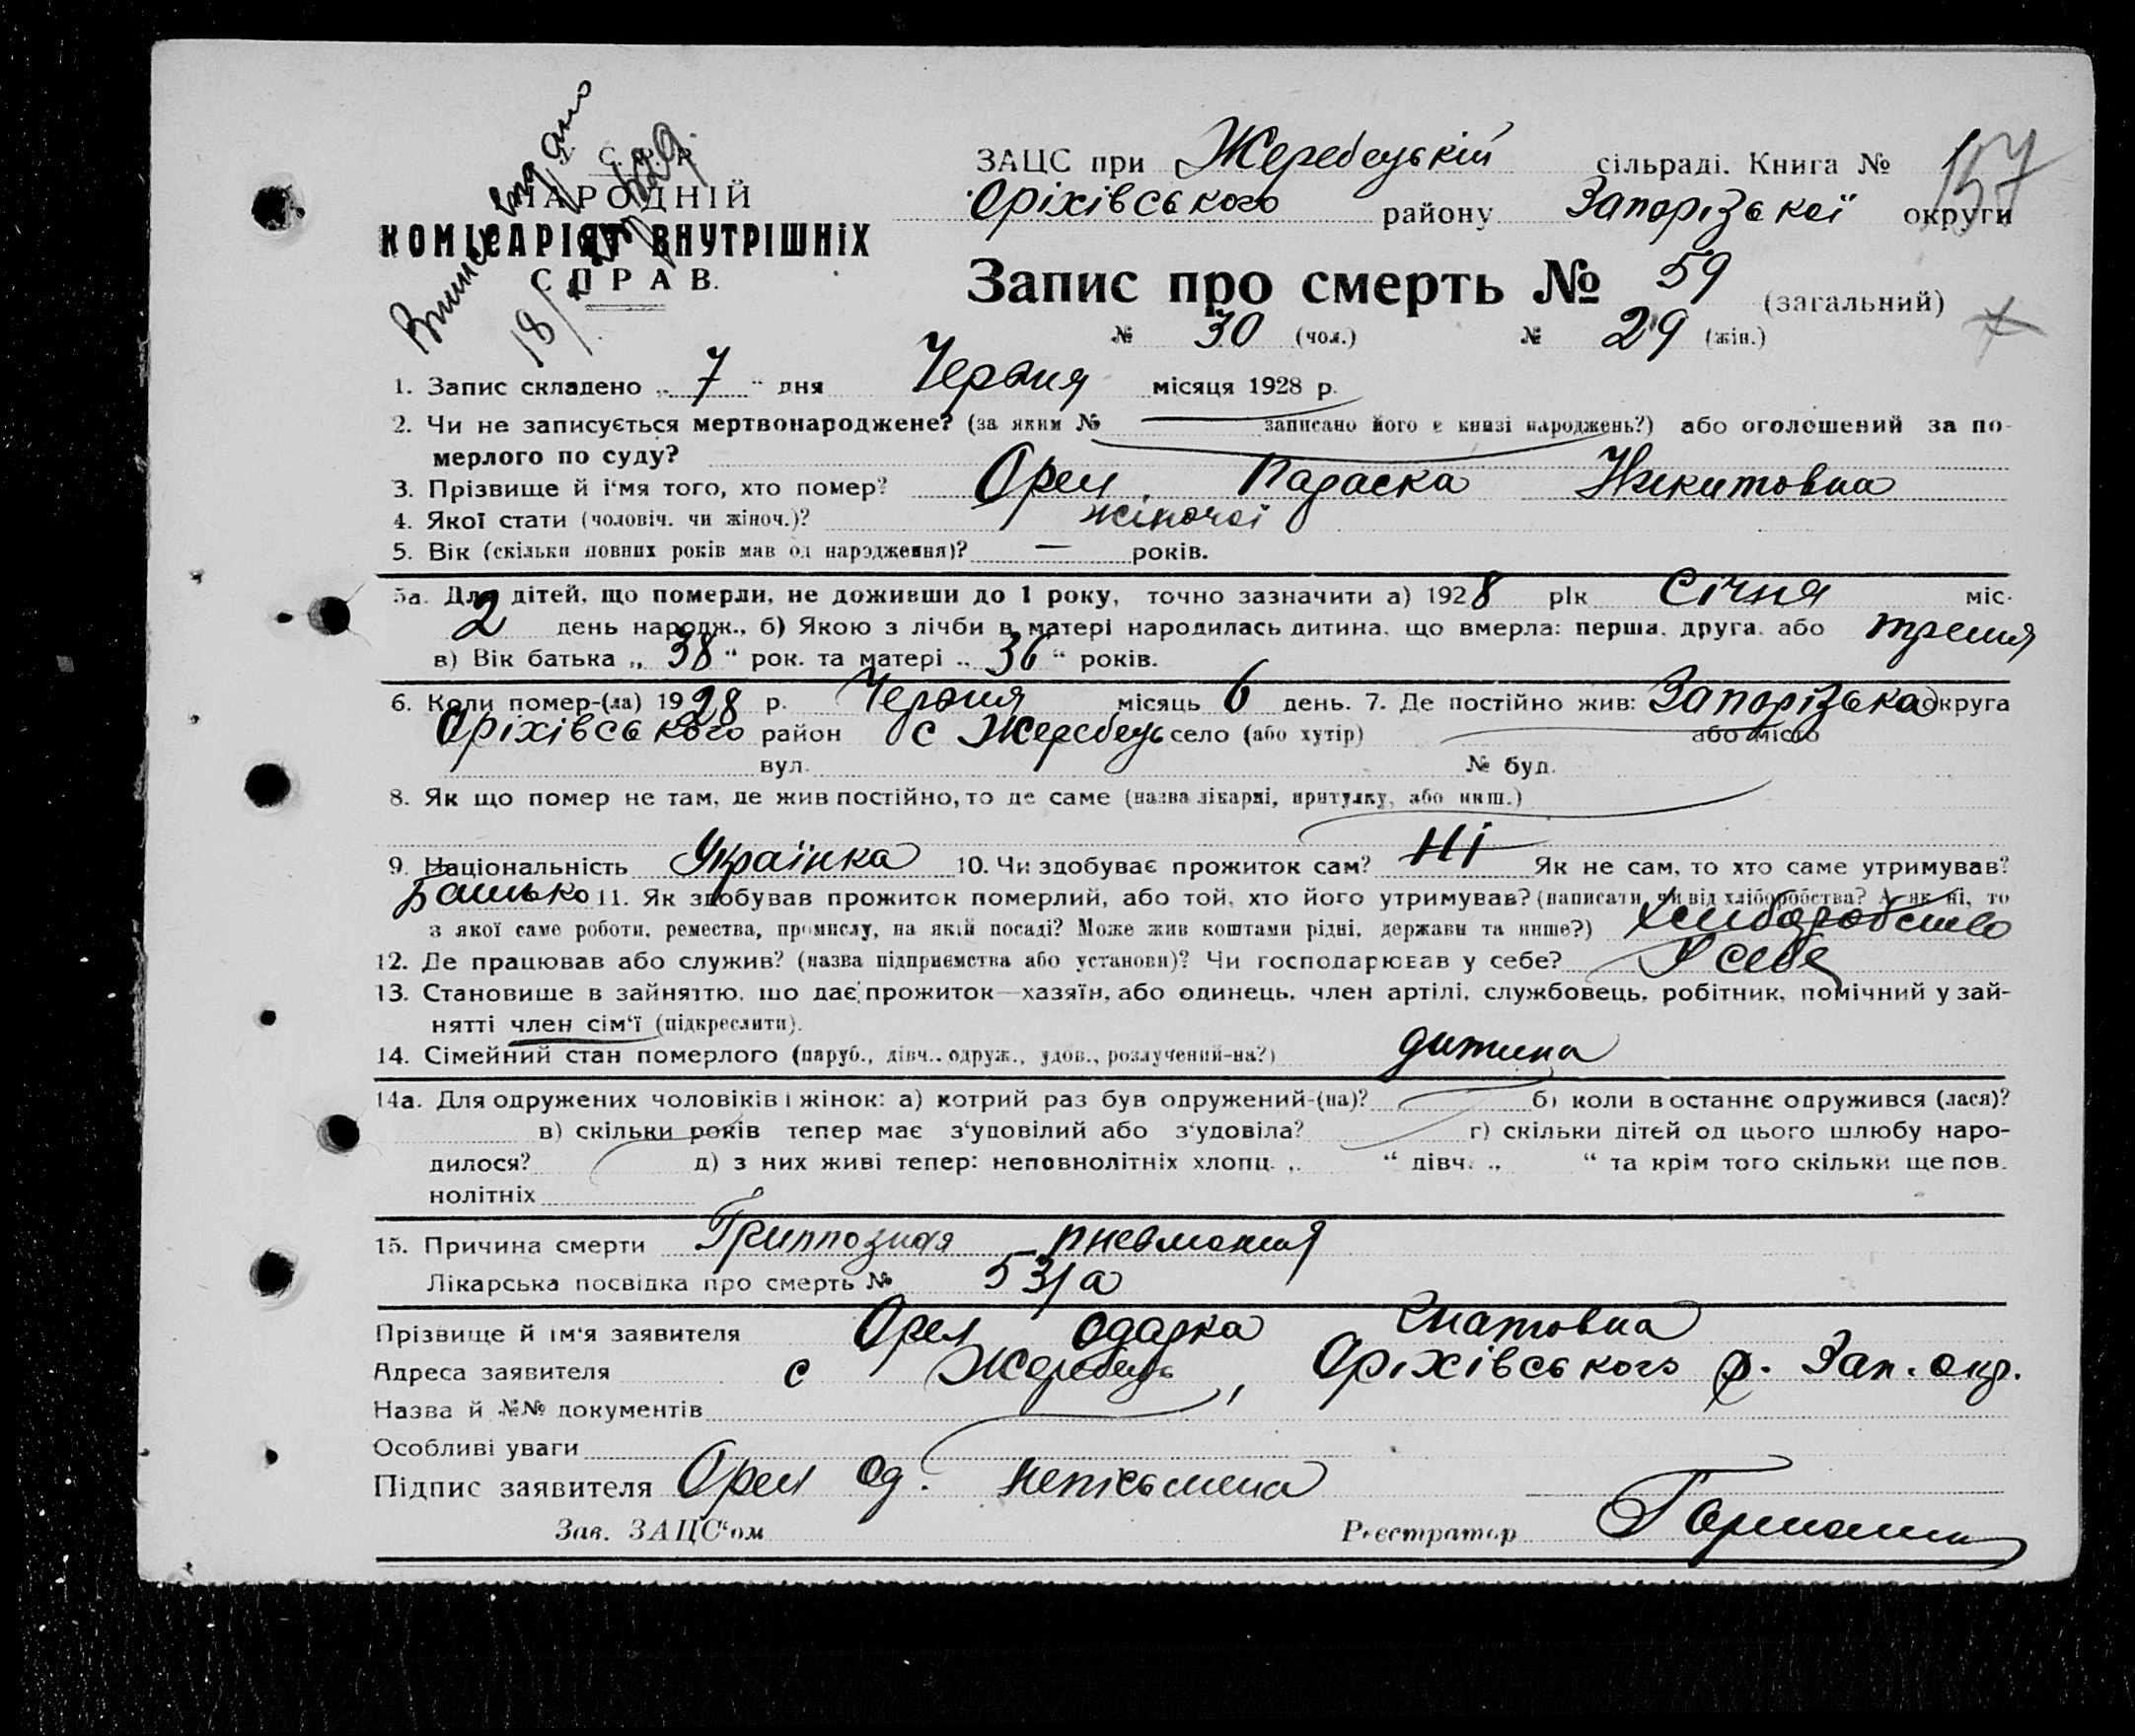 У. С. Р. Р.
НАРОДНІЙ
КОМІСАРІЯТ ВНУТРІШНІХ
СПРАВ.
ЗАЦС при Жеребецькій сільраді. Книга №
157
Оріхівського району Запорізької округи
Запис про смерть № 59 (загальний)
№ 30 (чол.) № 29 (жін.)
1. Запис складено „ 7 “ дня Червня місяця 1928 р.
2. Чи не записується мертвонароджене? (за яким № записано його в книзі народжень?) або оголошений за по-
мерлого по суду?
3. Прізвище й і‘мя того, хто помер? Орел, Параска Никитовна
4. Якої стати (чоловіч. чи жіноч.)? жіночої
5. Вік (скільки повних років мав од народження)? — років.
5а. Для дітей, що померли, не доживши до 1 року, точно зазначити а) 1928 рік Січня міс.
2 день народж., б) Якою з лічби в матері народилась дитина, що вмерла: перша, друга, або третя
в) Вік батька „ 38 “ рок. та матері „ 36 “ років.
6. Коли помер-(ла) 1928 р. Червня місяць 6 день. 7. Де постійно жив: Запорізька округа
Оріхівського район с Жеребець село (або хутір) або місто
вул. № буд.
8. Як що помер не там, де жив постійно, то де саме (назва лікарні, притулку, або инш.)
9. Національність Українка 10. Чи здобуває прожиток сам? Ні Як не сам, то хто саме утримував?
Батько 11. Як здобував прожиток померлий, або той, хто його утримував? (написати, чи від хліборобства? А як ні, то
з якої саме роботи, ремества, промислу, на якій посаді? Може жив коштами рідні, держави та инше?) Хлиборобство
12. Де працював або служив? (назва підприємства або установи)? Чи господарював у себе? У себе
13. Становище в зайняттю, що дає прожиток—хазяїн, або одинець, член артілі, службовець, робітник, помічний у зай-
нятті член сім‘ї (підкреслити).
14. Сімейний стан померлого (паруб., дівч., одруж., удов., розлучений-на?) дитина
14а. Для одружених чоловіків і жінок: а) котрий раз був одружений-(на)? б) коли в останнє одружився (лася)?
в) скільки років тепер має з‘удовілий або з‘удовіла? г) скільки дітей од цього шлюбу наро-
дилося? д) з них живі тепер: неповнолітніх хлопц. „ “ дівч. „ “ та крім того скільки ще пов.
нолітніх
15. Причина смерти Гриппозная пневмония
Лікарська посвідка про смерть № 53/а
Прізвище й ім‘я заявителя Орел Одарка Гнатовна
Адреса заявителя с Жеребець, Оріхівського р. Зап. окр.
Назва й №№ документів
Особливі уваги
Підпис заявителя Орел Од. непісьмена
Зав. ЗАЦС‘ом Реєстратор